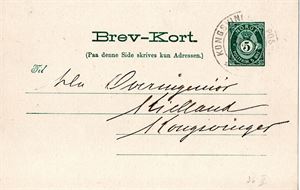 Brev-Kort.
(Paa denne Side skrives kun Adressen.)
NORGE
5
KONGS
Til
Hr. Overingeniör
Kielland
Kongsvinger